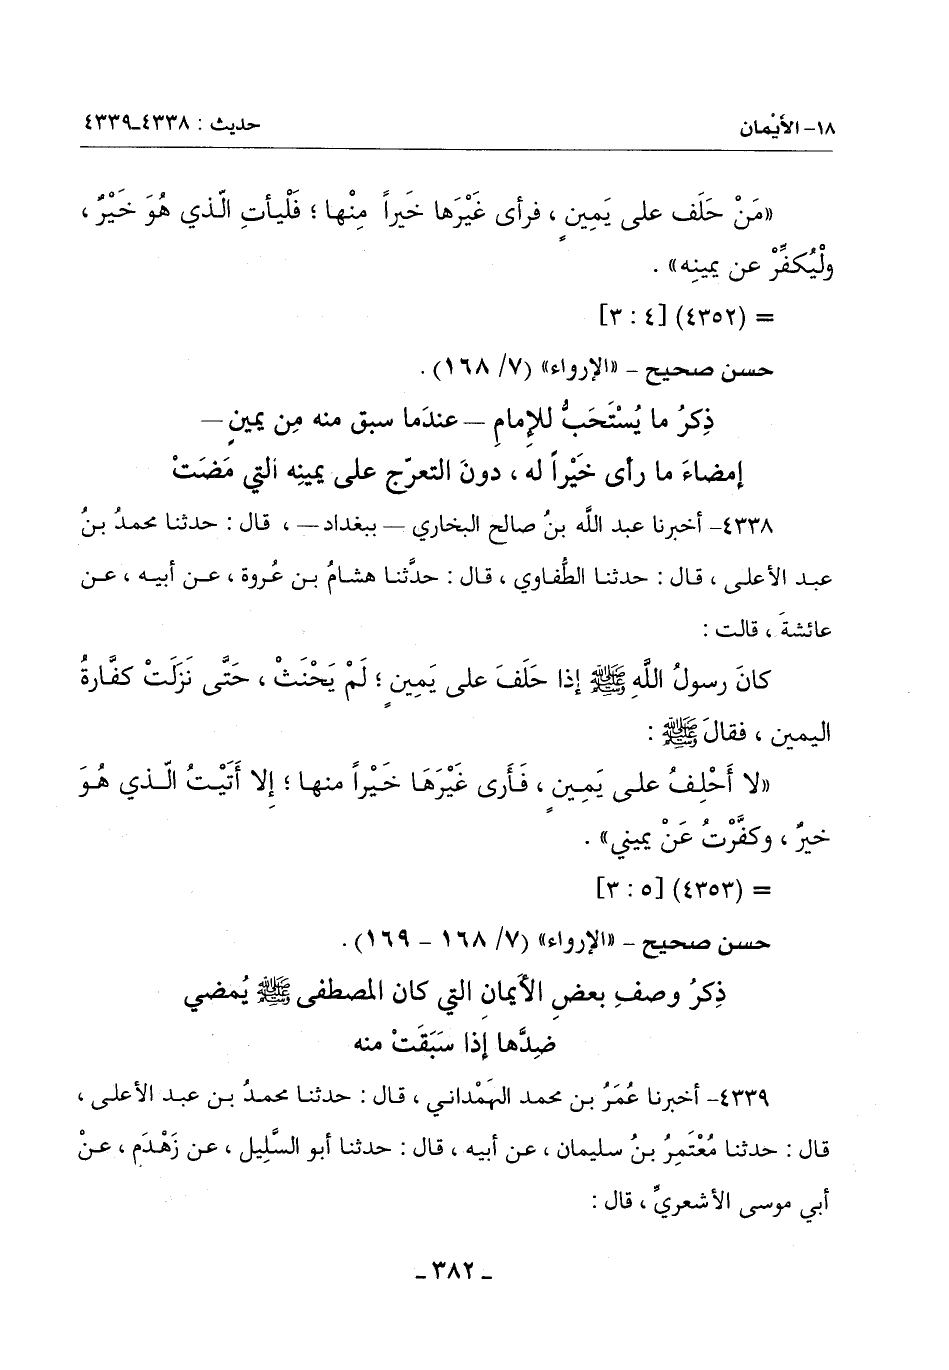 ١٨- الأيْمان حديث : ٤٣٣٨-٤٣٣٩
«مَنْ حَلَف على يَمِينٍ ، فرأى غَيْرَها خَيراً مِنْها ؛ فَلْيأتِ الّذي هُوَ خَيْرٌ ،
ولْيُكفِّرْ عن يمينِه» .
= (٤٣٥٢) [٤ : ٣]
حسن صحيح - «الإرواء» (٧/ ١٦٨) .
ذِكرُ ما يُسْتَحَبُّ للإمامِ — عندَما سبق منه مِن يمينٍ —
إمضاءَ ما رأى خَيْراً له ، دونَ التعرّجِ على يمينِه التي مَضَتْ
٤٣٣٨- أخبرنا عبد اللَّه بنُ صالح البخاري — ببغداد — ، قال : حدثنا محمدُ بنُ
عبد الأعلى ، قال : حدثنا الطُّفاوي ، قال : حدَّثنا هشامُ بن عُروة ، عن أبيه ، عن
عائشةَ ، قالت :
كانَ رسولُ اللَّهِ ﷺ إذا حَلَفَ على يَمِينٍ ؛ لَمْ يَحْنَثْ ، حَتَّى نَزَلَتْ كفَّارةُ
اليمين ، فقالَ ﷺ :
«لا أَحْلِفُ على يَمِينٍ ، فَأَرى غَيْرَهَا خَيْراً منها ؛ إلا أَتَيْتُ الّذي هُوَ
خيرٌ ، وكفَّرْتُ عَنْ يميني» .
= (٤٣٥٣) [٥ : ٣]
حسن صحيح - «الإرواء» (٧/ ١٦٨ - ١٦٩) .
ذِكرُ وصفِ بعضِ الأَيمانِ التي كان المصطفى ﷺ يُمضي
ضِدَّها إذا سَبَقَتْ منه
٤٣٣٩- أخبرنا عُمَرُ بن محمد الهَمْداني ، قال : حدثنا محمدُ بن عبد الأعلى ،
قال : حدثنا مُعْتَمِرُ بنُ سليمان ، عن أبيه ، قال : حدثنا أبو السَّليل ، عن زَهْدَمٍ ، عنْ
أبي موسى الأشعريِّ ، قال :
- ٣٨٢ -